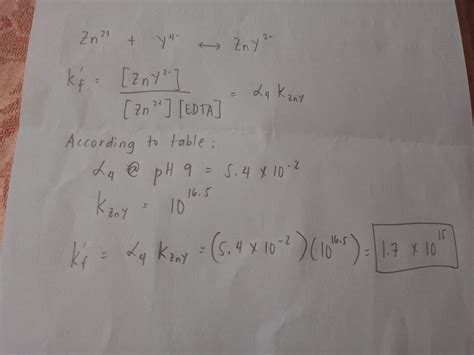 Zn²⁺ + Y⁴⁻ ↔ ZnY²⁻
k'f = [ZnY²⁻] / [Zn²⁺][EDTA] = α₄ KZnY
According to table:
α₄ @ pH 9 = 5.4 × 10⁻²
KZnY = 10¹⁶·⁵
k'f = α₄ KZnY = (5.4 × 10⁻²)(10¹⁶·⁵) = 1.7 × 10¹⁵